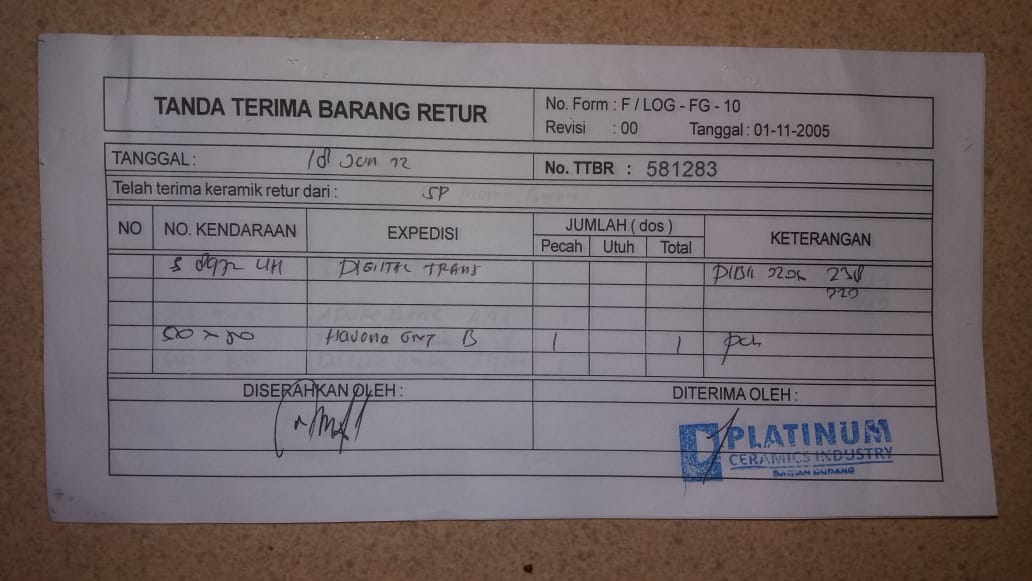 TANDA TERIMA BARANG RETUR
No. Form : F / LOG - FG - 10
Revisi : 00 Tanggal : 01-11-2005
TANGGAL : 18 Jun 22
No. TTBR : 581283
Telah terima keramik retur dari : SP
NO NO. KENDARAAN EXPEDISI JUMLAH ( dos ) KETERANGAN
Pecah Utuh Total
DIGITAL TRANS
50 x 50 Havona GRY B 1 1 pch
DISERAHKAN OLEH : DITERIMA OLEH :
PLATINUM
CERAMICS INDUSTRY
BAGIAN GUDANG